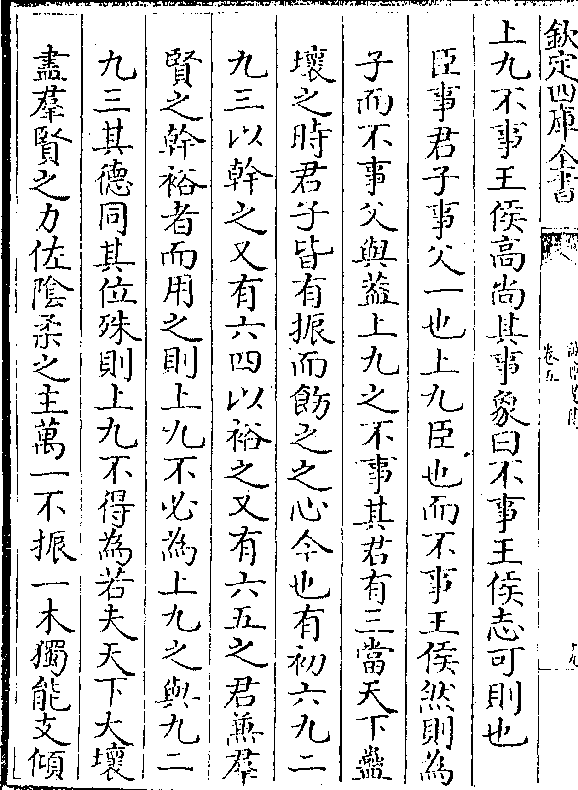 欽定四庫全書
卷五
上九不事王侯高尚其事象曰不事王侯志可則也
臣事君子事父一也上九臣也而不事王侯然則為
子而不事父與葢上九之不事其君有三當天下蠱
壞之時君子皆有振而飭之之心今也有初六九二
九三以幹之又有六四以裕之又有六五之君兼羣
賢之幹裕者而用之則上九不必為上九之與九二
九三其德同其位殊則上九不得為若夫天下大壞
盡羣賢之力佐隂柔之主萬一不振一木獨能支傾